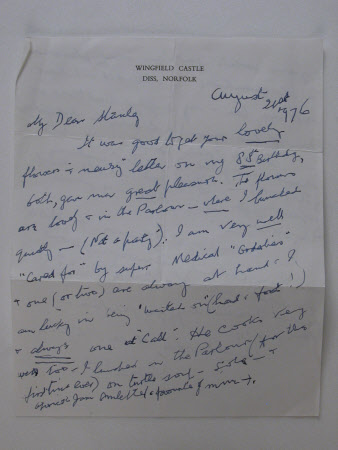 WINGFIELD CASTLE
DISS, NORFOLK
August 21st 1976
My Dear Stanley
It was good to get your lovely
flowers & newsy letter on my 85th Birthday,
both gave me great pleasure. The flowers
are lovely & in the Parlour – where I lunched
quietly – (Not a party). I am very well
"Cared for" by super Medical "
& one (or two) are always at hand. I
am lucky in being "waited on" (hand & foot!)
& always one at "Call". He cooks very
well too – I lunched in the Parlour (for the
first time ever) on turtle soup – Sole –